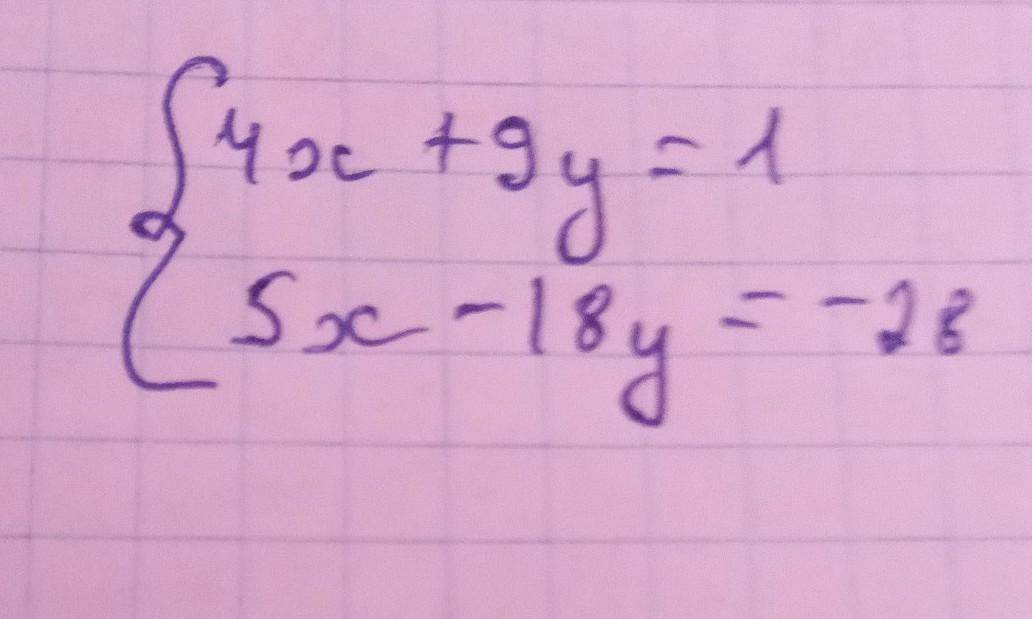 4x + 9y = 1
5x - 18y = -28